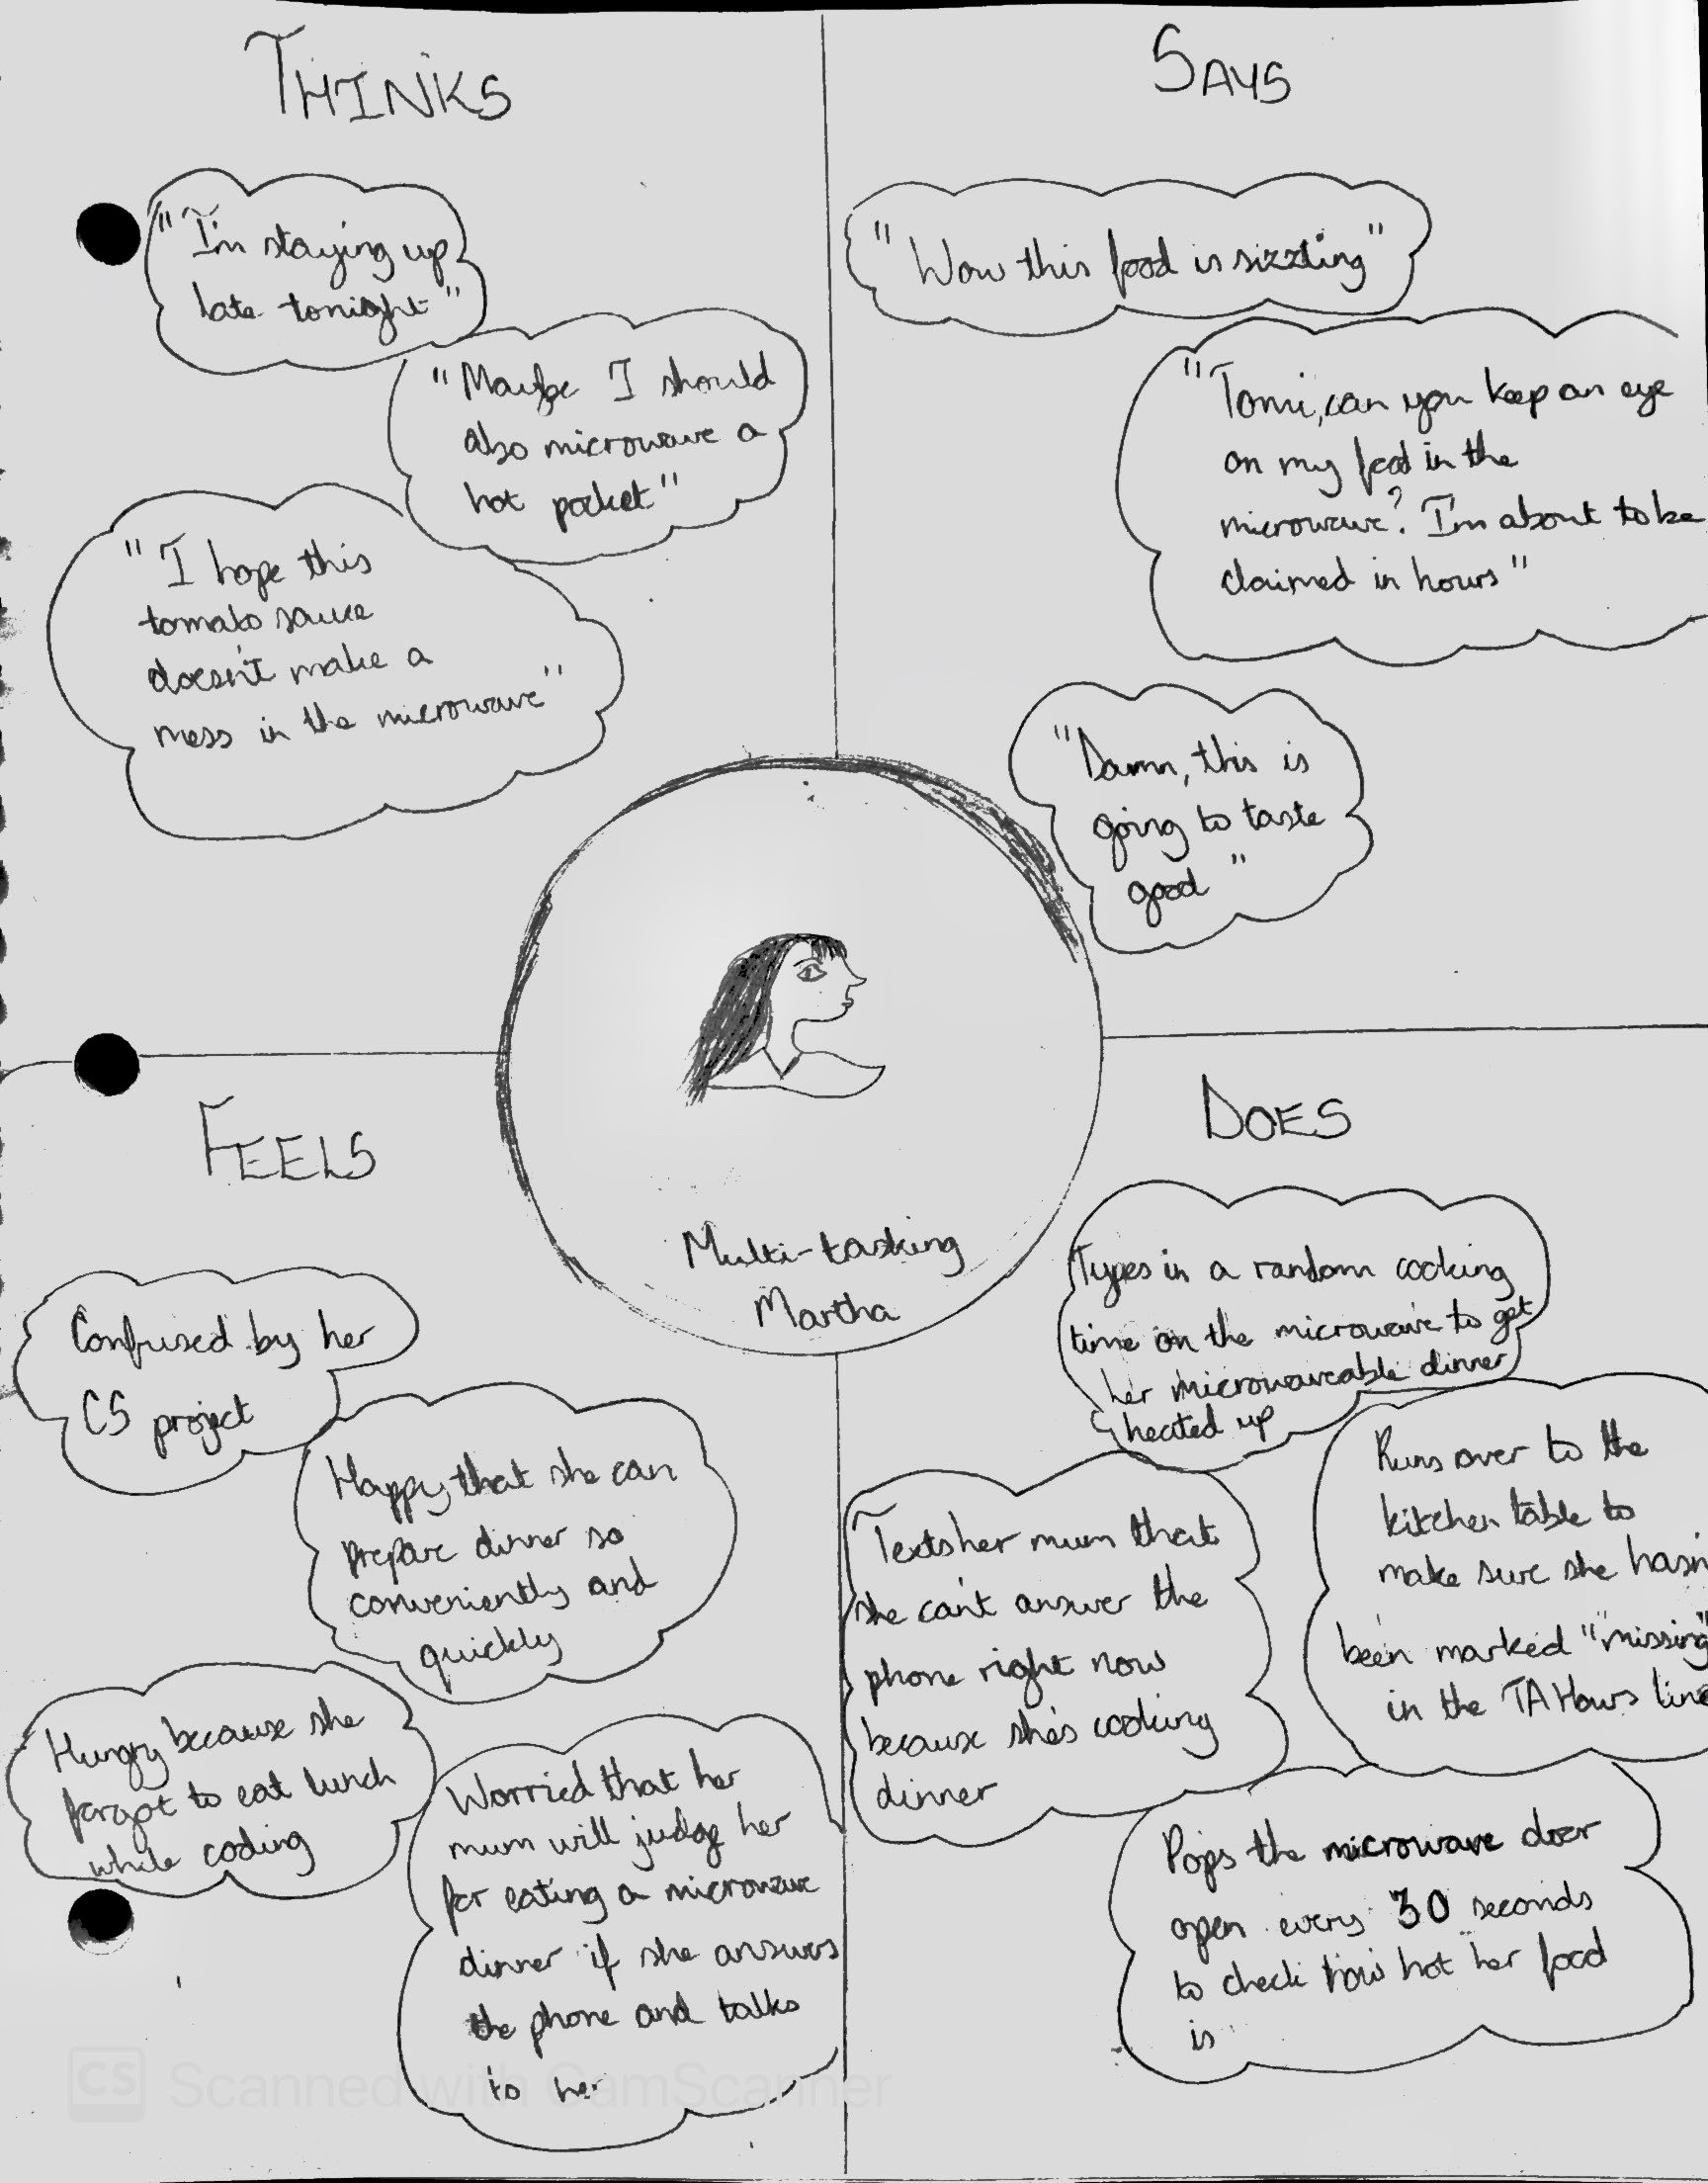 THINKS
"I'm staying up
late tonight"
"Maybe I should
also microwave a
hot pocket"
"I hope this
tomato sauce
doesn't make a
mess in the microwave"
SAYS
"Wow this food is sizzling"
"Tomi, can you keep an eye
on my food in the
microwave? I'm about to be
claimed in hours"
"Damn, this is
going to taste
good"
Multi-tasking
Martha
FEELS
Confused by her
CS project
Happy that she can
prepare dinner so
conveniently and
quickly
Hungry because she
forgot to eat lunch
while coding
Worried that her
mum will judge her
for eating a microwave
dinner if she answers
the phone and talks
to her
DOES
Types in a random cooking
time on the microwave to get
her microwaveable dinner
heated up
Runs over to the
kitchen table to
make sure she hasn
been marked "missing"
in the TA Hours line
Texts her mum that
she can't answer the
phone right now
because she's cooking
dinner
Pops the microwave door
open every 30 seconds
to check how hot her food
is
CS Scanned with CamScanner